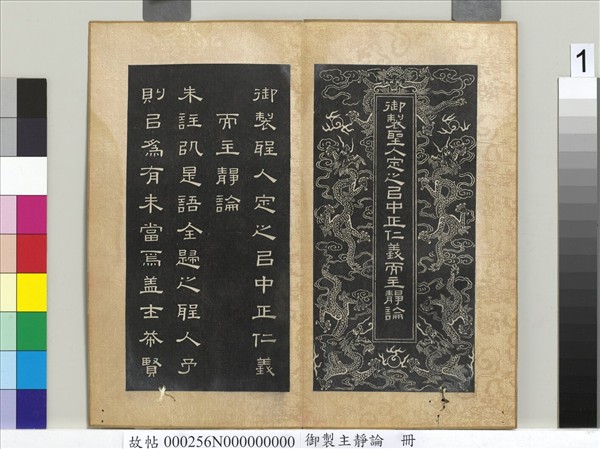 御製聖人定之㠯中正仁義而主靜論
御製聖人定之㠯中正仁義
而主靜論
朱註訊是語全歸之聖人予
則㠯為有未當焉蓋士希賢
1
故帖 000256N000000000 御製主靜論 冊